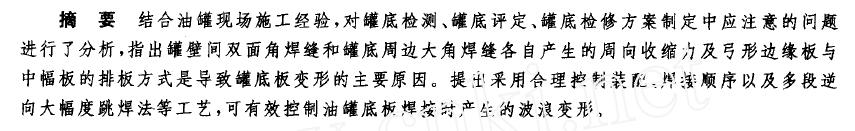 摘 要 结合油罐现场施工经验,对罐底检测、罐底评定、罐底检修方案制定中应注意的问题
进行了分析,指出罐壁间双面角焊缝和罐底周边大角焊缝各自产生的周向收缩力及弓形边缘板与
中幅板的排板方式是导致罐底板变形的主要原因。提出采用合理控制装配、焊接顺序以及多段逆
向大幅度跳焊法等工艺,可有效控制油罐底板焊接时产生的波浪变形。